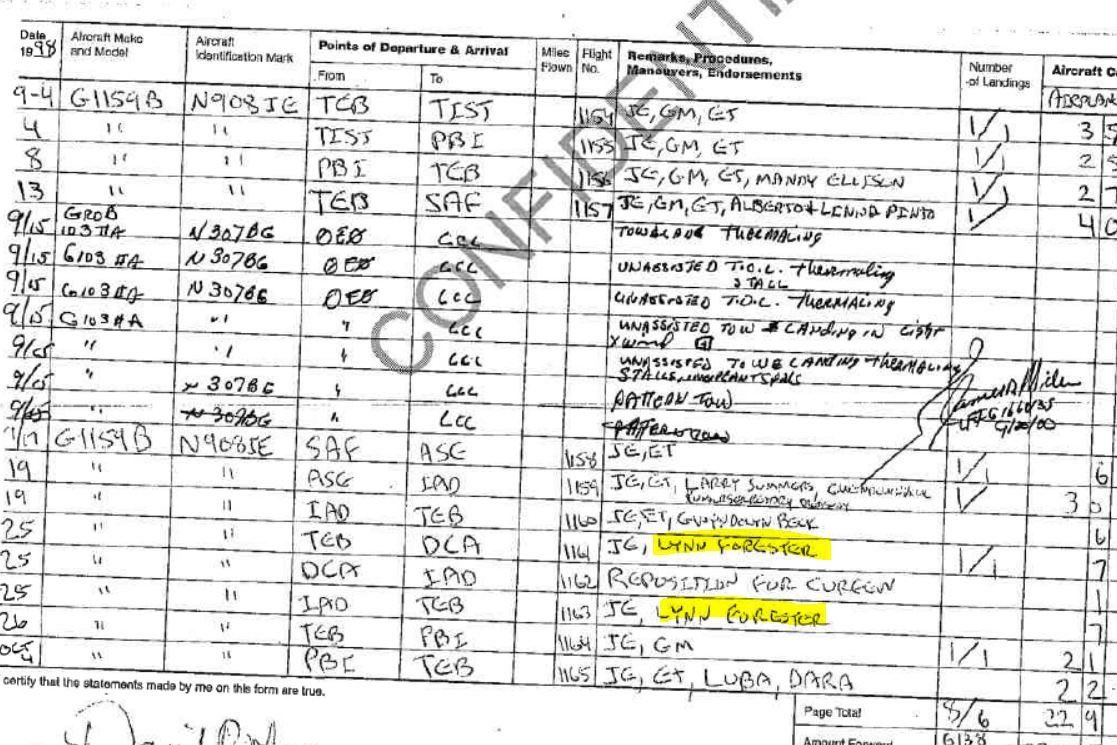 CONFIDENTI
Date 1998 Aircraft Make and Model Aircraft Identification Mark Points of Departure & Arrival From To Miles Flown Flight No. Remarks, Procedures, Maneuvers, Endorsements Number of Landings Aircraft C
AIRPLAN
9-4 G1159B N908JE TEB TIST 1154 JE, GM, ET 1/1 3
4 " " TIST PBI 1155 JE, GM, ET 1/1 2
8 " " PBI TEB 1156 JE, GM, ET, MANDY ELLISON 1/1 2
13 " " TEB SAF 1157 JE, GM, ET, ALBERTO + LINDA PINTO 1/ 4
9/15 GROB 103 IIA N307BG THERMALING
9/15 G103 IIA N307BG LCL UNASSISTED T.O.L. Thermaling STALL
9/15 G103 IIA N307BG LCL UNASSISTED T.O.L. THERMALING
9/15 G103 IIA " " LCL UNASSISTED TOW & LANDING IN LIGHT X wind
9/15 " " " LCL UNASSISTED TOW & LANDING THERMALING STALLS
9/15 " N307BG " LCL PATTERN TOW
" N307BG " LCL
9/20/00
G1159B N908JE SAF ASE 1158 JE, ET 1/1 6
19 " " ASE IAD 1159 JE, ET, LARRY SUMMERS, 1/ 3
19 " " IAD TEB 1160 JE, ET, GWENDOLYN BECK 6
25 " " TEB DCA 1161 JE, LYNN FORESTER 1/1 7
25 " " DCA IAD 1162 REPOSITION FOR CURFEW 1
25 " " IAD TEB 1163 JE, LYNN FORESTER 7
26 " " TEB PBI 1164 JE, GM 1/1 2 1
OCT " " PBI TEB 1165 JE, ET, LUBA, DARA 2 2
certify that the statements made by me on this form are true.
Page Total 8/6 22 9
Amount Forward 6138